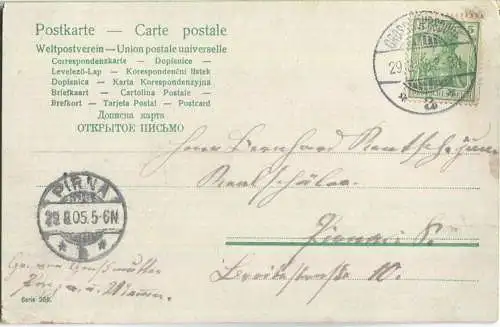 Postkarte — Carte postale
Weltpostverein — Union postale universelle
Correspondenzkarte — Dopisnice —
Levelező-Lap — Korespondenční listek
Dopisnica — Karta Korespondenzyjna
Briefkaart — Cartolina Postale —
Brefkort — Tarjeta Postal — Postcard
Дописна карта
ОТКРЫТОЕ ПИСЬМО
5
29.
PIRNA
29.8.05.5-6N.
Herrn Bernhard
Realschüler.
Pirna
Breitestraße 10.
Gr. von Großmutter
Serie 269.